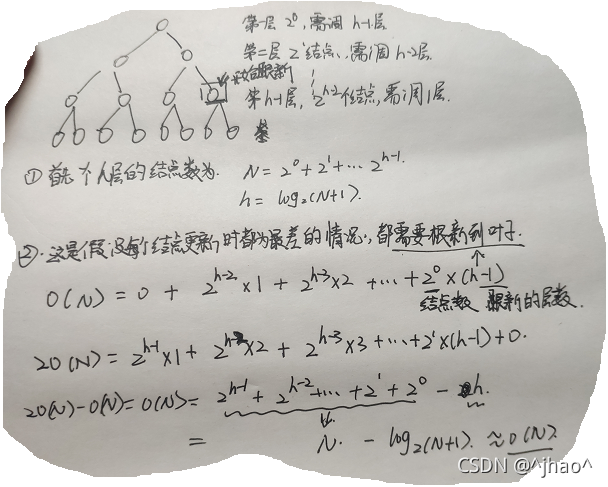 第一层 2⁰, 需调 h-1层
第二层 2¹结点, 需调 h-2层.
开始跟新
第h-1层, 2ʰ⁻²个结点, 需调1层.
① 首先 个人层的结点数为. N = 2⁰ + 2¹ + ... 2ʰ⁻¹.
h = log₂(N+1).
②. 这是假设每个结点更新时都为最差的情况, 都需要跟新到叶子.
O(N) = 0 + 2ʰ⁻²×1 + 2ʰ⁻³×2 + ... + 2⁰×(h-1)
结点数 跟新的层数.
2O(N) = 2ʰ⁻¹×1 + 2ʰ⁻²×2 + 2ʰ⁻³×3 + ... + 2¹×(h-1) + 0.
2O(N)-O(N) = O(N) = 2ʰ⁻¹ + 2ʰ⁻² + ... + 2¹ + 2⁰ - h.
= N. - log₂(N+1). ≈ O(N).
CSDN @^jhao^